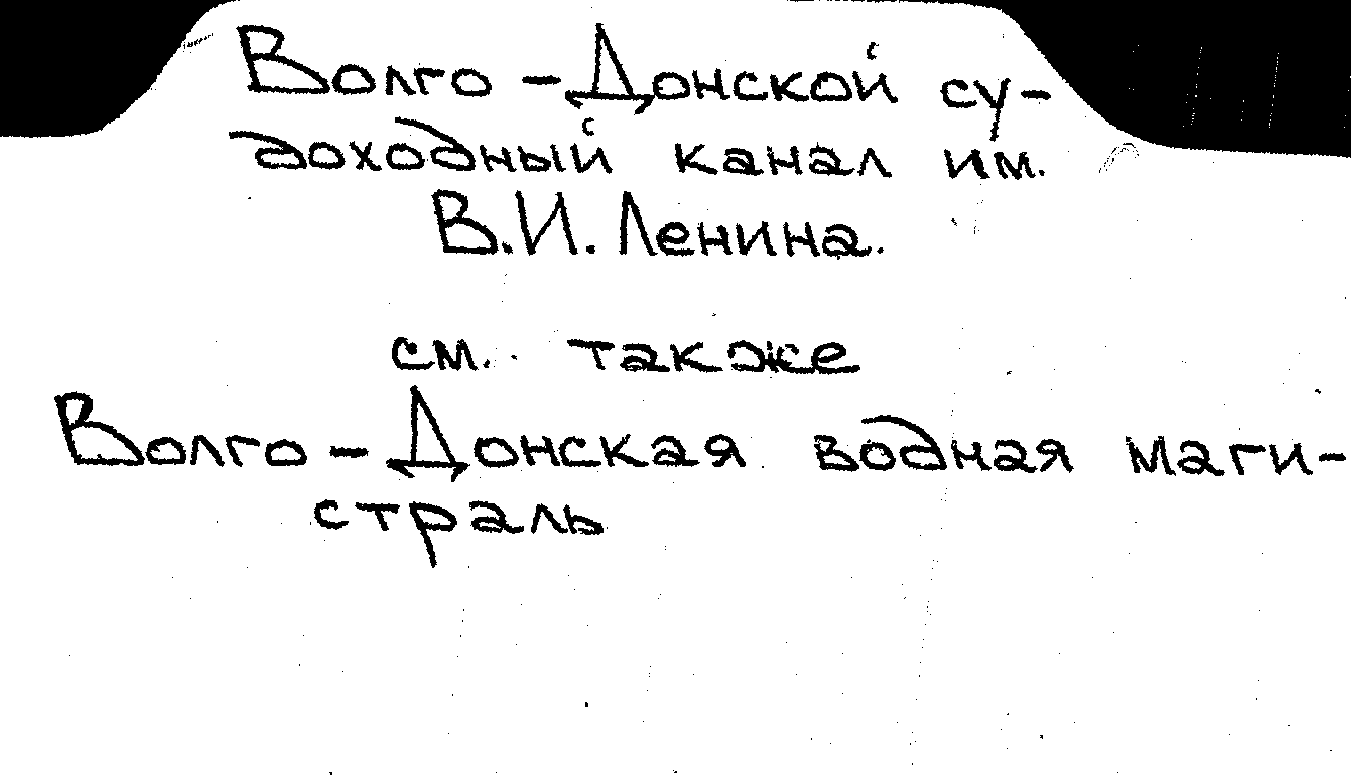 Волго-Донской су-
доходный канал им.
В.И. Ленина.
см. также
Волго-Донская водная маги-
страль